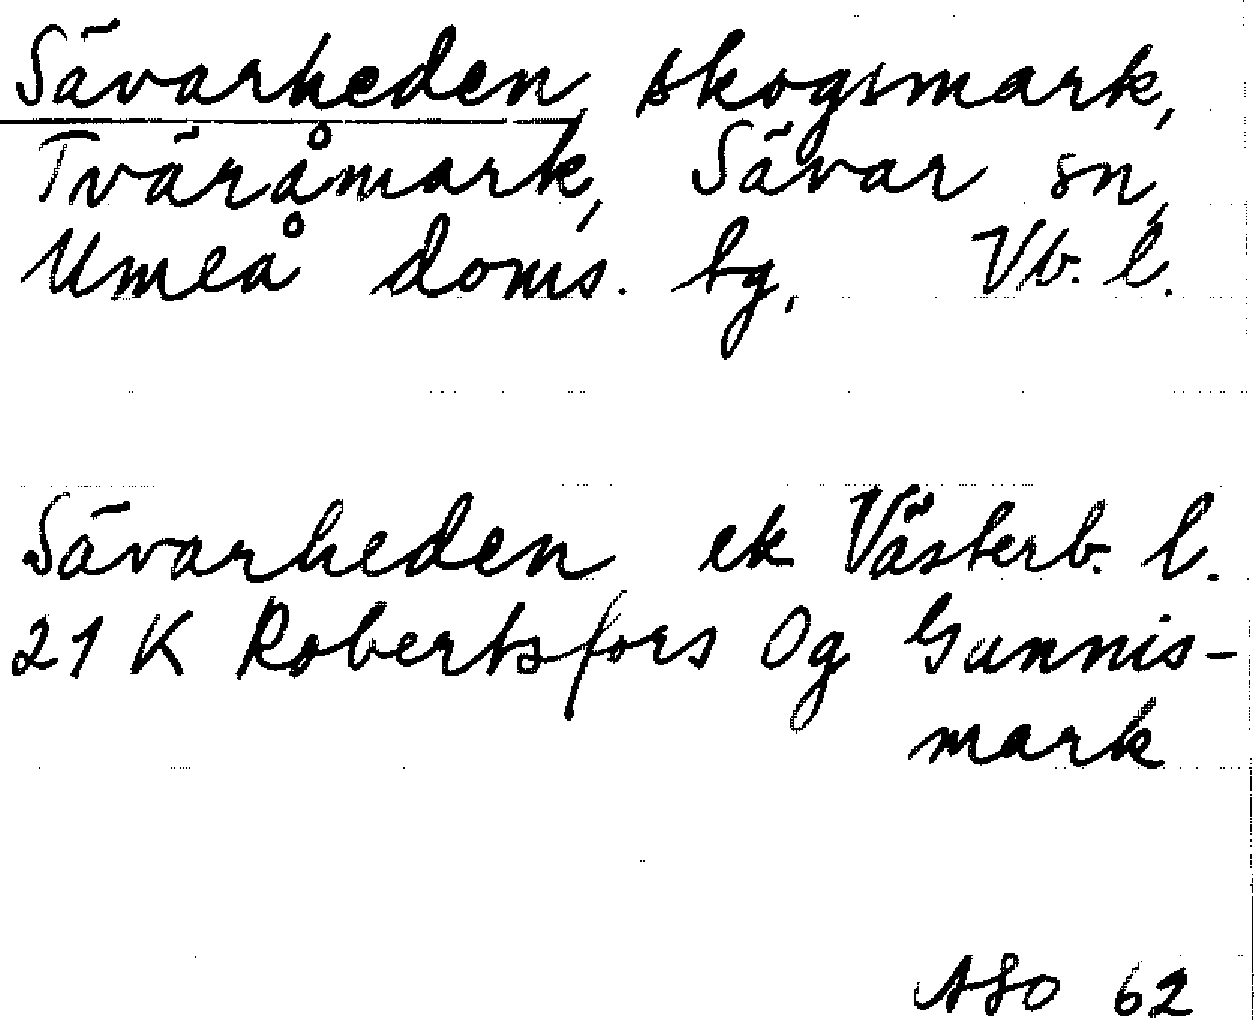 Sävarheden, skogsmark,
Tväråmark, Sävar sn,
Umeå doms. tg, Vb. l.
Sävarheden ek Västerb. l.
21 K Robertsfors Og Gunnis-
mark
ASO 62